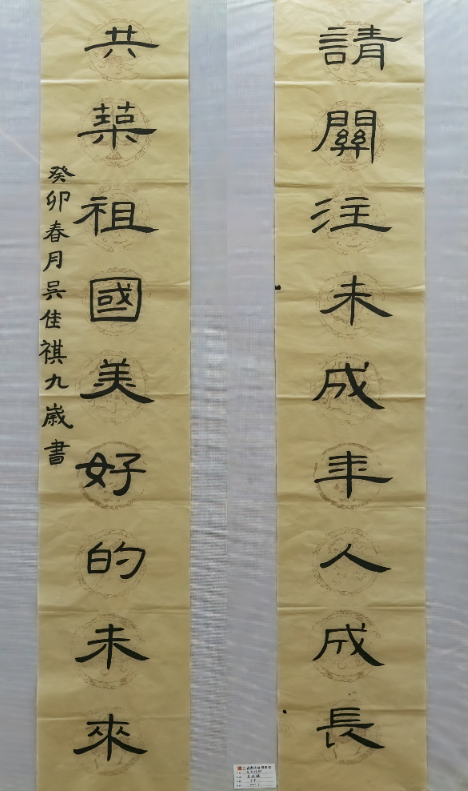 請關注未成年人成長
共築祖國美好的未來
癸卯春月吴佳祺九歲書